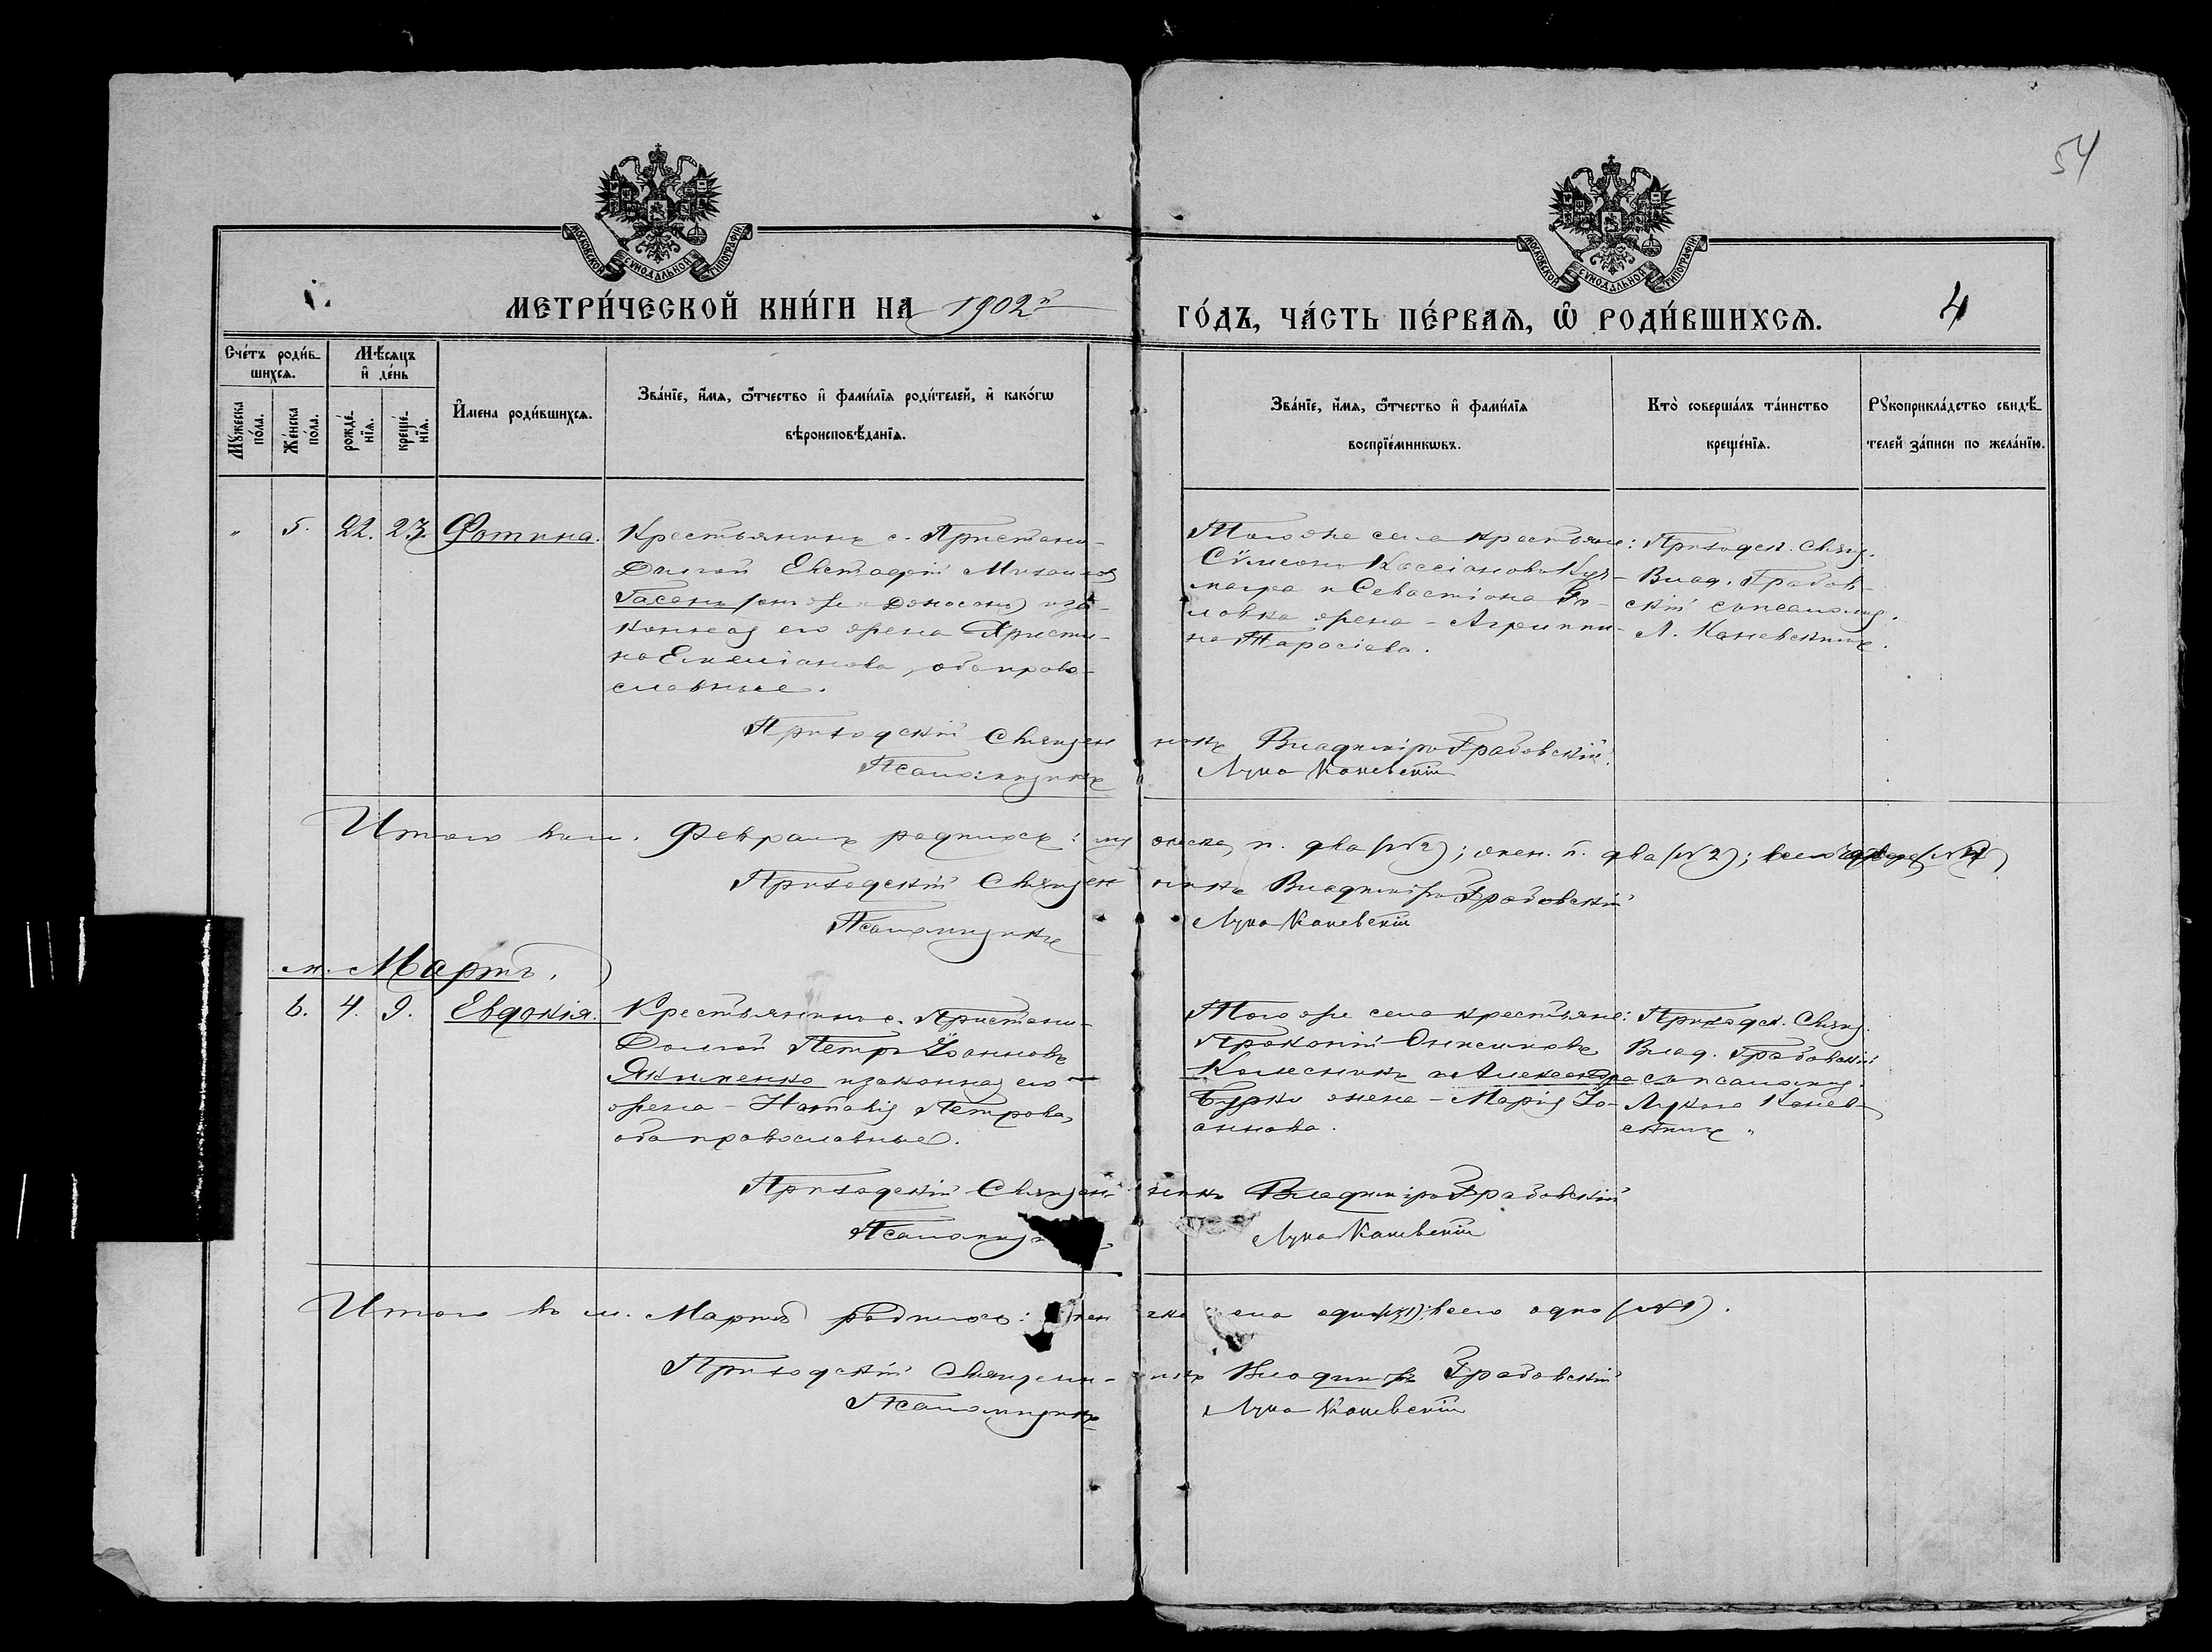 54
МОСКОВСКОЙ СУНОДАЛЬНОЙ ТИПОГРАФІИ
МОСКОВСКОЙ СУНОДАЛЬНОЙ ТИПОГРАФІИ
МЕТРИ́ЧЕСКОЙ КНИ́ГИ НА 1902й
ГО́ДЪ, ЧА́СТЬ ПЕ́РВАѦ, Ѡ҆ РОДИ́ВШИХСѦ.
4
Сче́тъ роди́в-
шихсѧ.
Мѣ́сяцъ
и҆ де́нь
Мꙋ́жеска по́ла.
Же́нска по́ла.
рожде́-
нїѧ.
креще́-
нїѧ.
И҆мена роди́вшихсѧ.
Зва́нїе, и҆́мѧ, ѻ҆́тчество и҆ фами́лїѧ роди́телей, и҆ како́гѡ
вѣроисповѣ́данїѧ.
Зва́нїе, и҆́мѧ, ѻ҆́тчество и҆ фами́лїѧ
воспрїе́мникѡвъ.
Кто̀ соверша́лъ та́инство
креще́нїѧ.
Рꙋкоприкла́дство свидѣ́-
телей за́писи по жела́нїю.
" 5. 22. 23. Фотина.
Крестьянинъ с. Пристани-
Долгой Евстафій Михаиловъ
Гасанъ (онъ же и Доносанъ) и за-
конная его жена Христи-
на Емеліанова, оба право-
славные.
Того же села крестьяне:
Сѵмеонъ Кассіановъ
и Севастіана
ловка жена - Агриппи-
на Тарасіева.
Приходск. Священ.
Влад. Грабов-
скій съ псаломщ.
Л. Каневскимъ.
Приходскій Священникъ Владиміръ Грабовскій
Псаломщикъ Лука Каневскій
Итого въ м. Февралѣ родилось: мужеска п. два (№2); жен. п. два (№2); всего
Приходскій Священникъ Владиміръ Грабовскій
Псаломщикъ Лука Каневскій
м. Мартъ.
6. 4. 9. Евдокія.
Крестьянинъ с. Пристани-
Долгой Петръ Іоанновъ
Якименко и законная его
жена - Наталія Петрова,
оба православные.
Того же села крестьяне:
Прокопій Онисимовъ
Колесникъ и Александра
Бурко жена - Марія Іо-
аннова.
Приходск. Священ.
Влад. Грабовскій
съ псаломщ.
Лукою Канев-
скимъ.
Приходскій Священникъ Владиміръ Грабовскій
Лука Каневскій
Итого въ м. Мартѣ родилось: всего одно (№1).
Приходскій Священникъ Владиміръ Грабовскій
Псаломщикъ Лука Каневскій